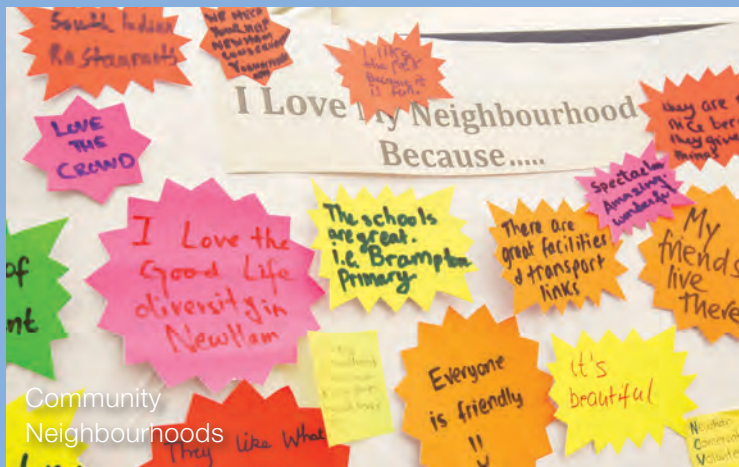 South Indian
Restaurants
I like
the park
because it
is fun.
I Love My Neighbourhood
Because.....
LOVE
THE
CROWD
they are
nice
they give
things
Spectacular
Amazing
wonderful
I Love the
Good Life
diversity in
Newham
The schools
are great.
i.e. Brampton
Primary.
There are
great facilities
& transport
links
My
friends
live
there
of
nt
Everyone
is friendly
!!
it's
beautiful
They like What
Community
Neighbourhoods